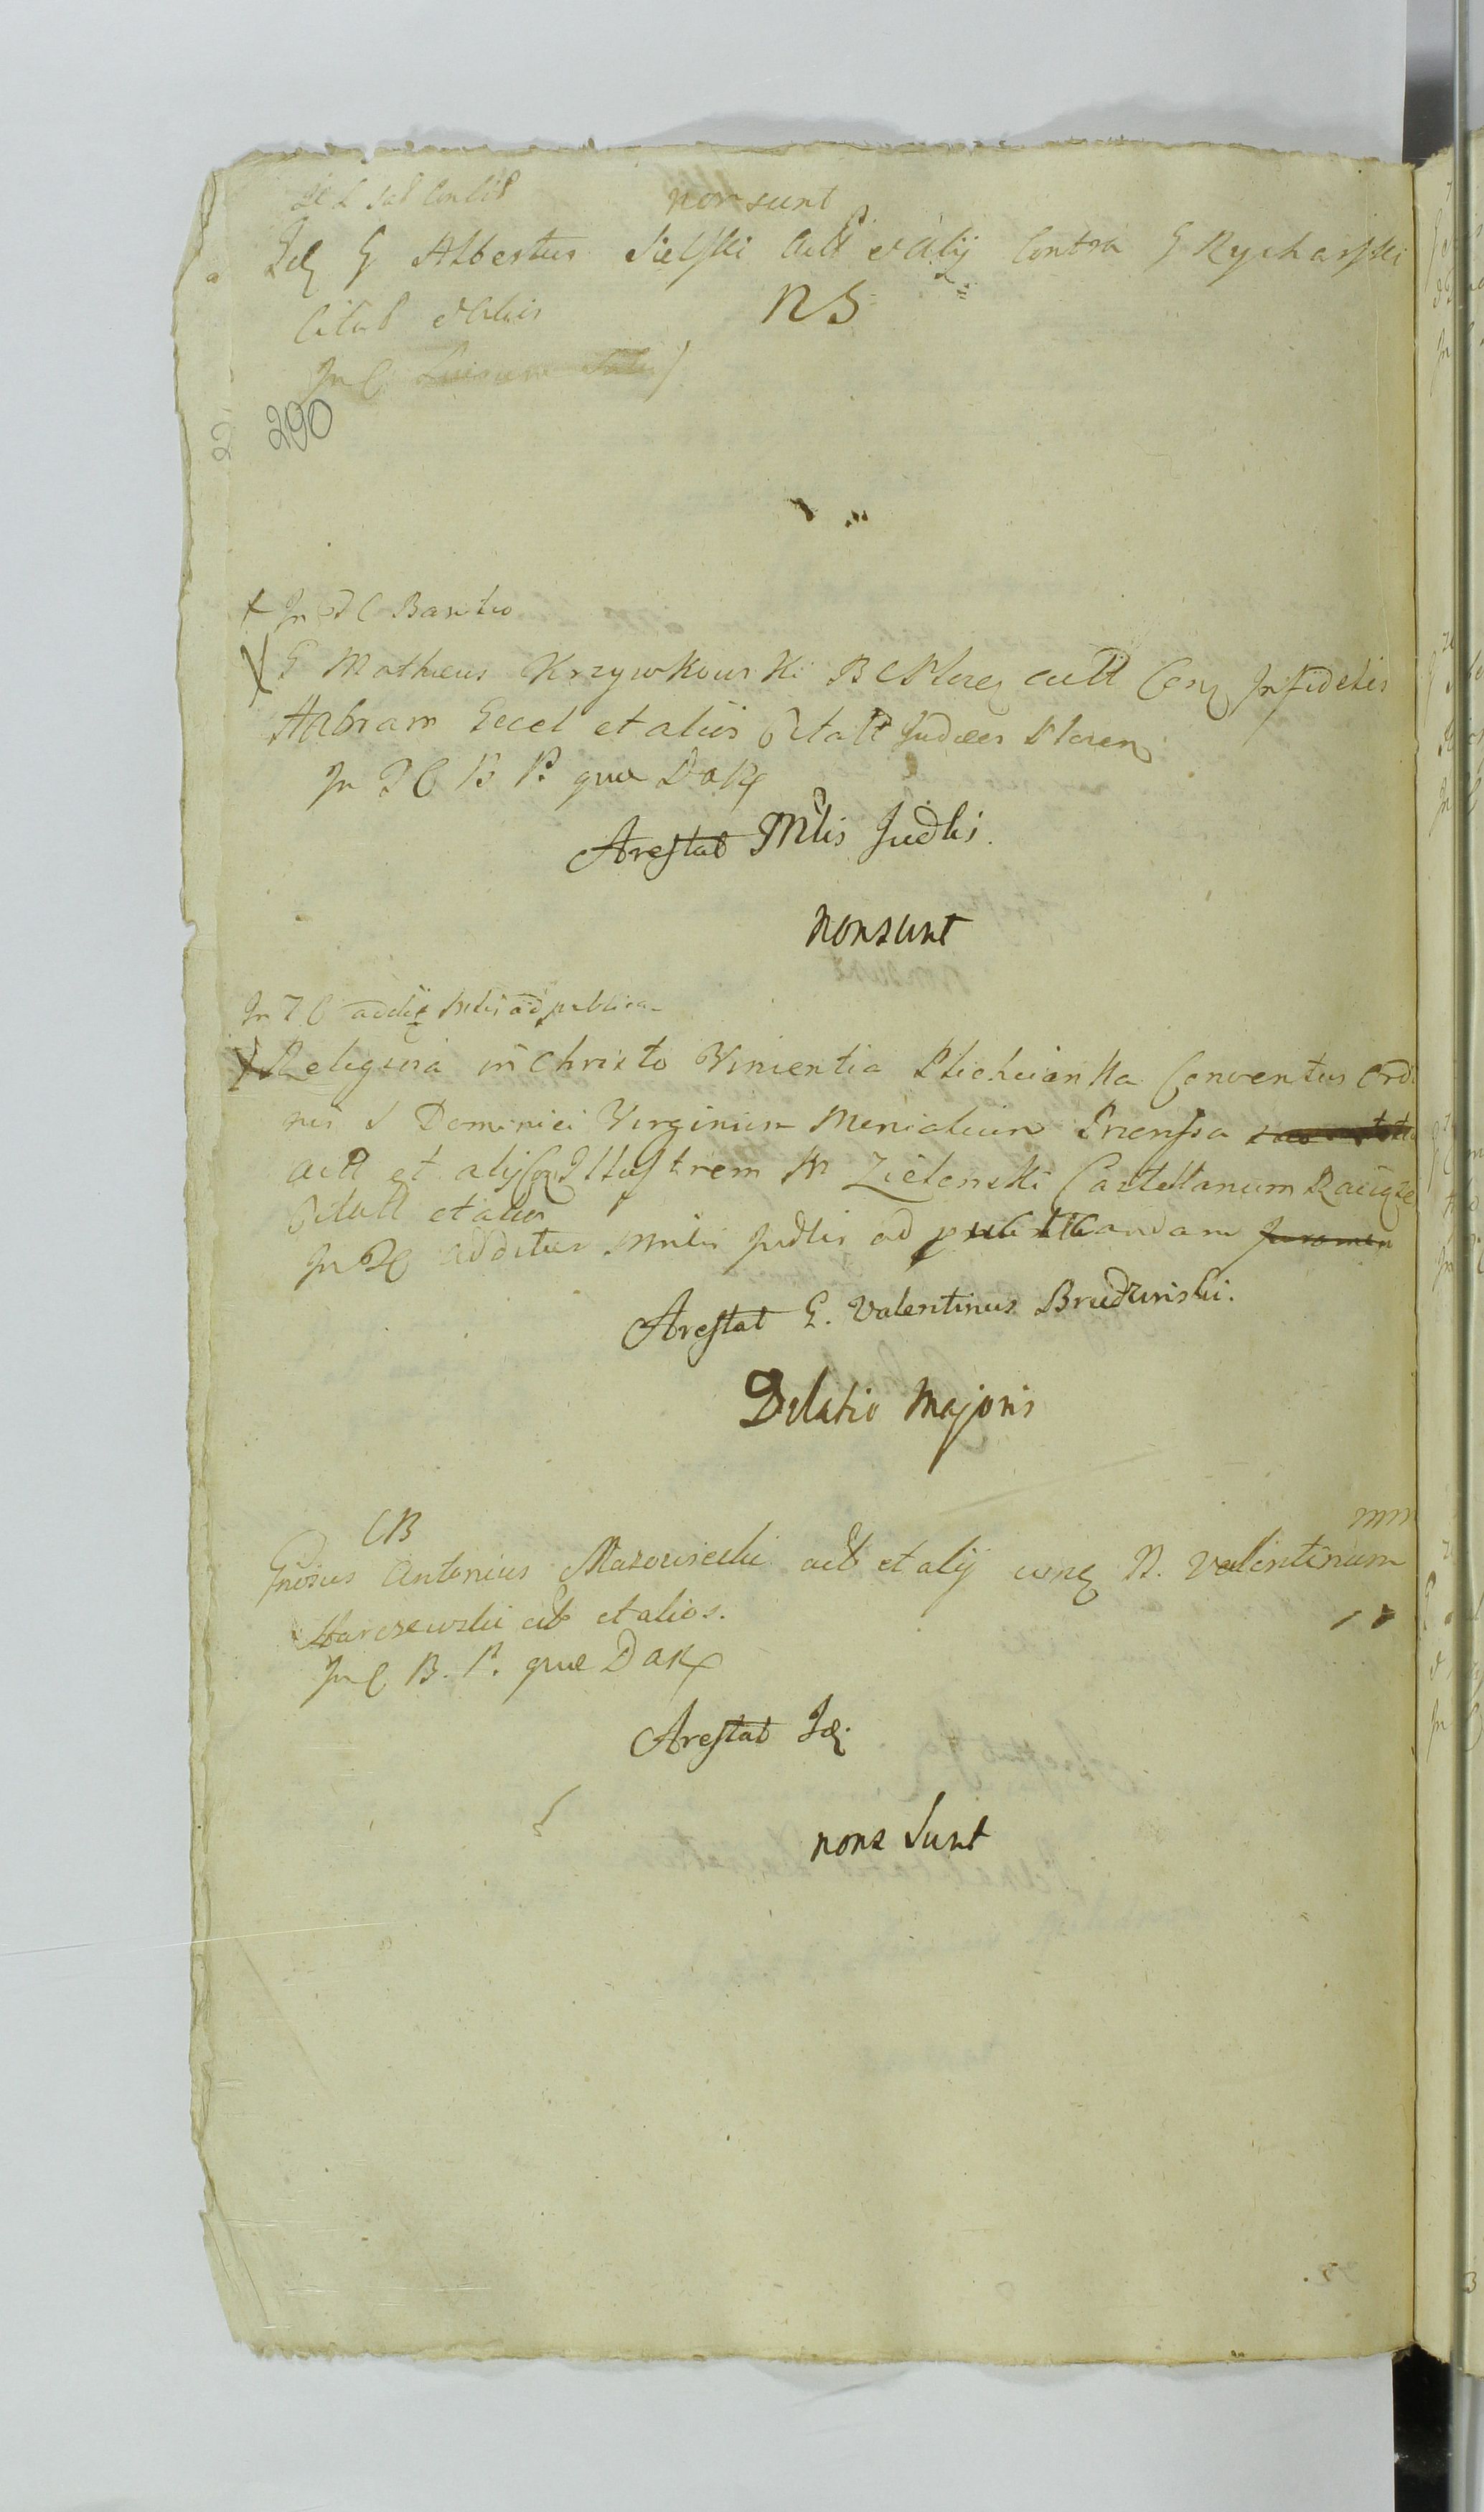 non sunt
G Albertus Sielski Actt et Alij Contra G Rycharski
Citat et Alios
NS
In C
290
In C Banitio
G Matheus Krzywkowski B C Plocen actt Conq Infideles
Habram Gecel et alios Citatt Judeos Plocen
In T C B P que Dax
Arestat Mlis Judlis.
non sunt
In T C additq Mlis ad publica
Religiosa in Christo Vincentia Plichcianka Conventus Ordi
nis S Dominici Virginum Monialium Priorissa
actt et alij Conq Illustrem M Zielenski Castellanum Raciąze
Citatt et alios
In T C additur Mnlis Judlis ad publicandam Juramen
Arestat G. Valentinus Brudzinski.
Dilatio Majoris
CB
mm
Gnosus Antonius Mazowiecki act et alij conq N. Valentinum
Karczewski cit et alios.
In C B. P. que Dax
Arestat Id.
non sunt